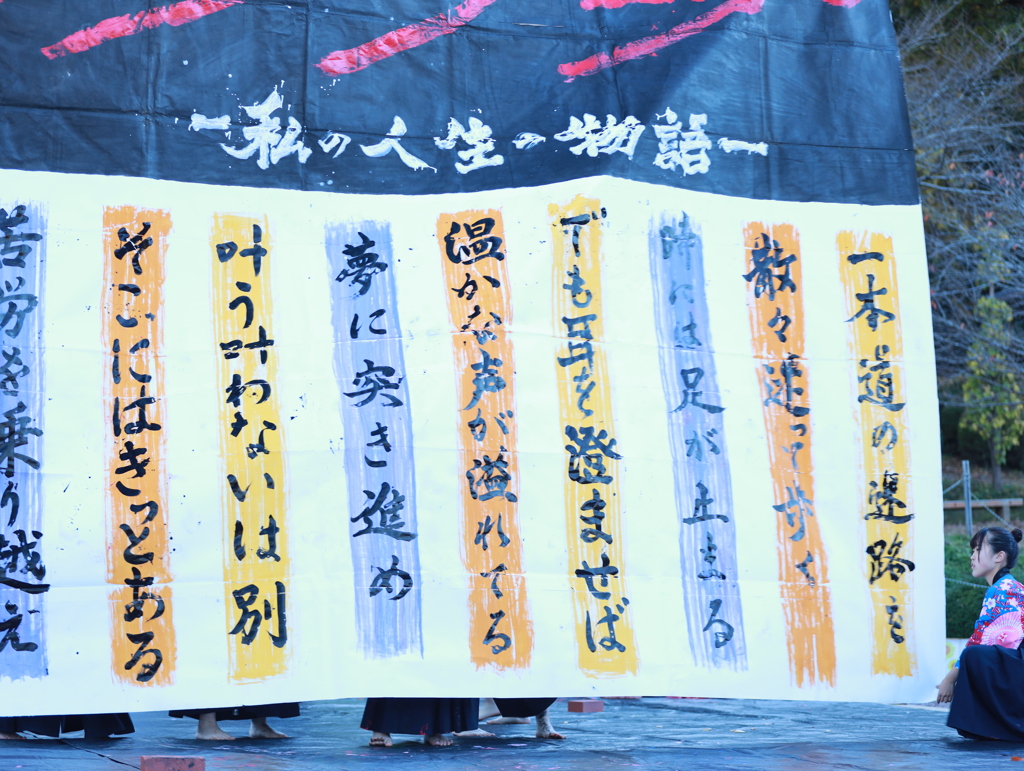 -私の人生の物語-
一本道の迷路を
散々迷って歩く
時には足が止まる
でも耳を澄ませば
温かな声が溢れてる
夢に突き進め
叶う叶わないは別
そこにはきっとある
苦労を乗り越え